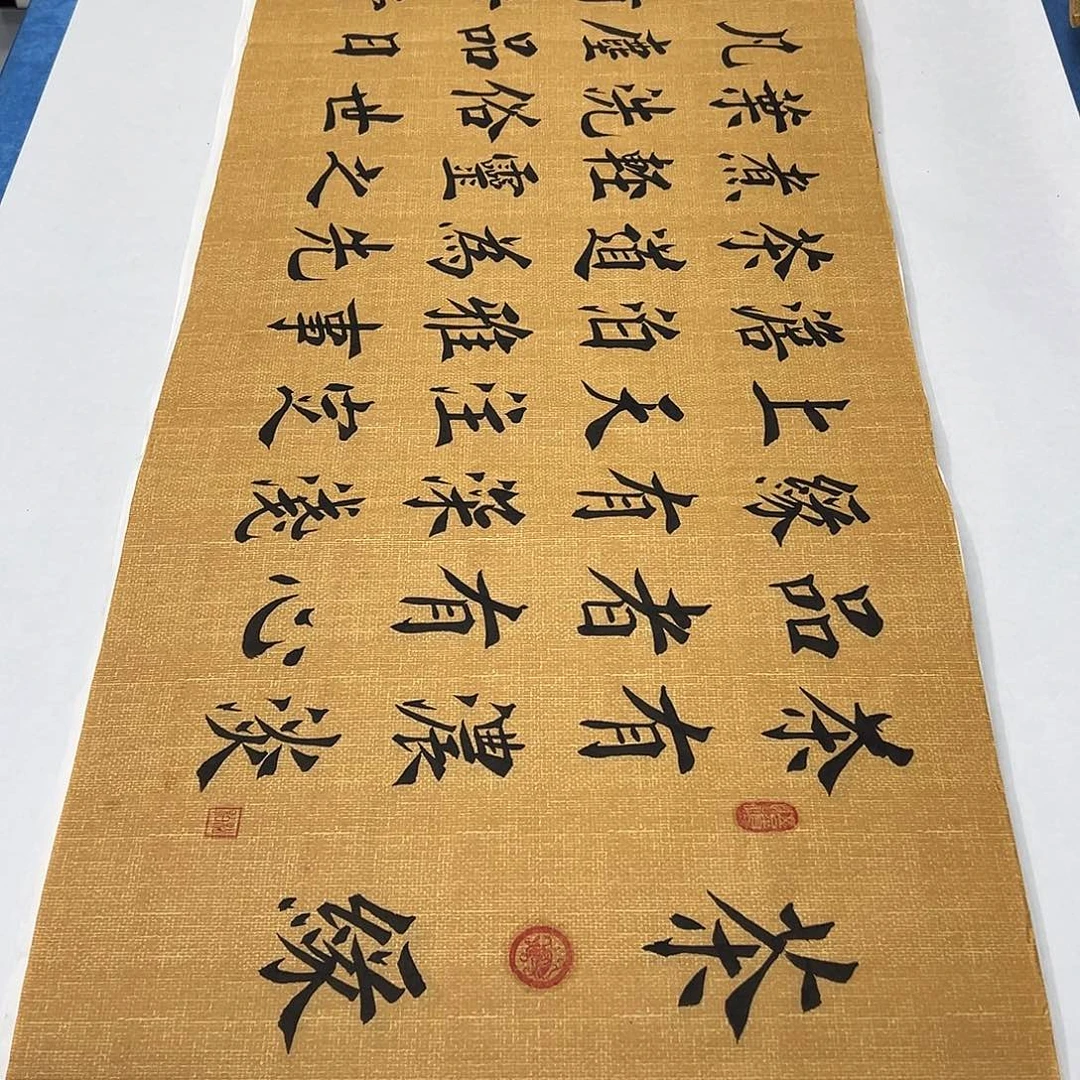 茶緣
茶有濃淡
品者有心
緣有深淺
上天注定
澹泊雅事
茶道為先
煮輕靈之
葉洗俗世
凡塵品日